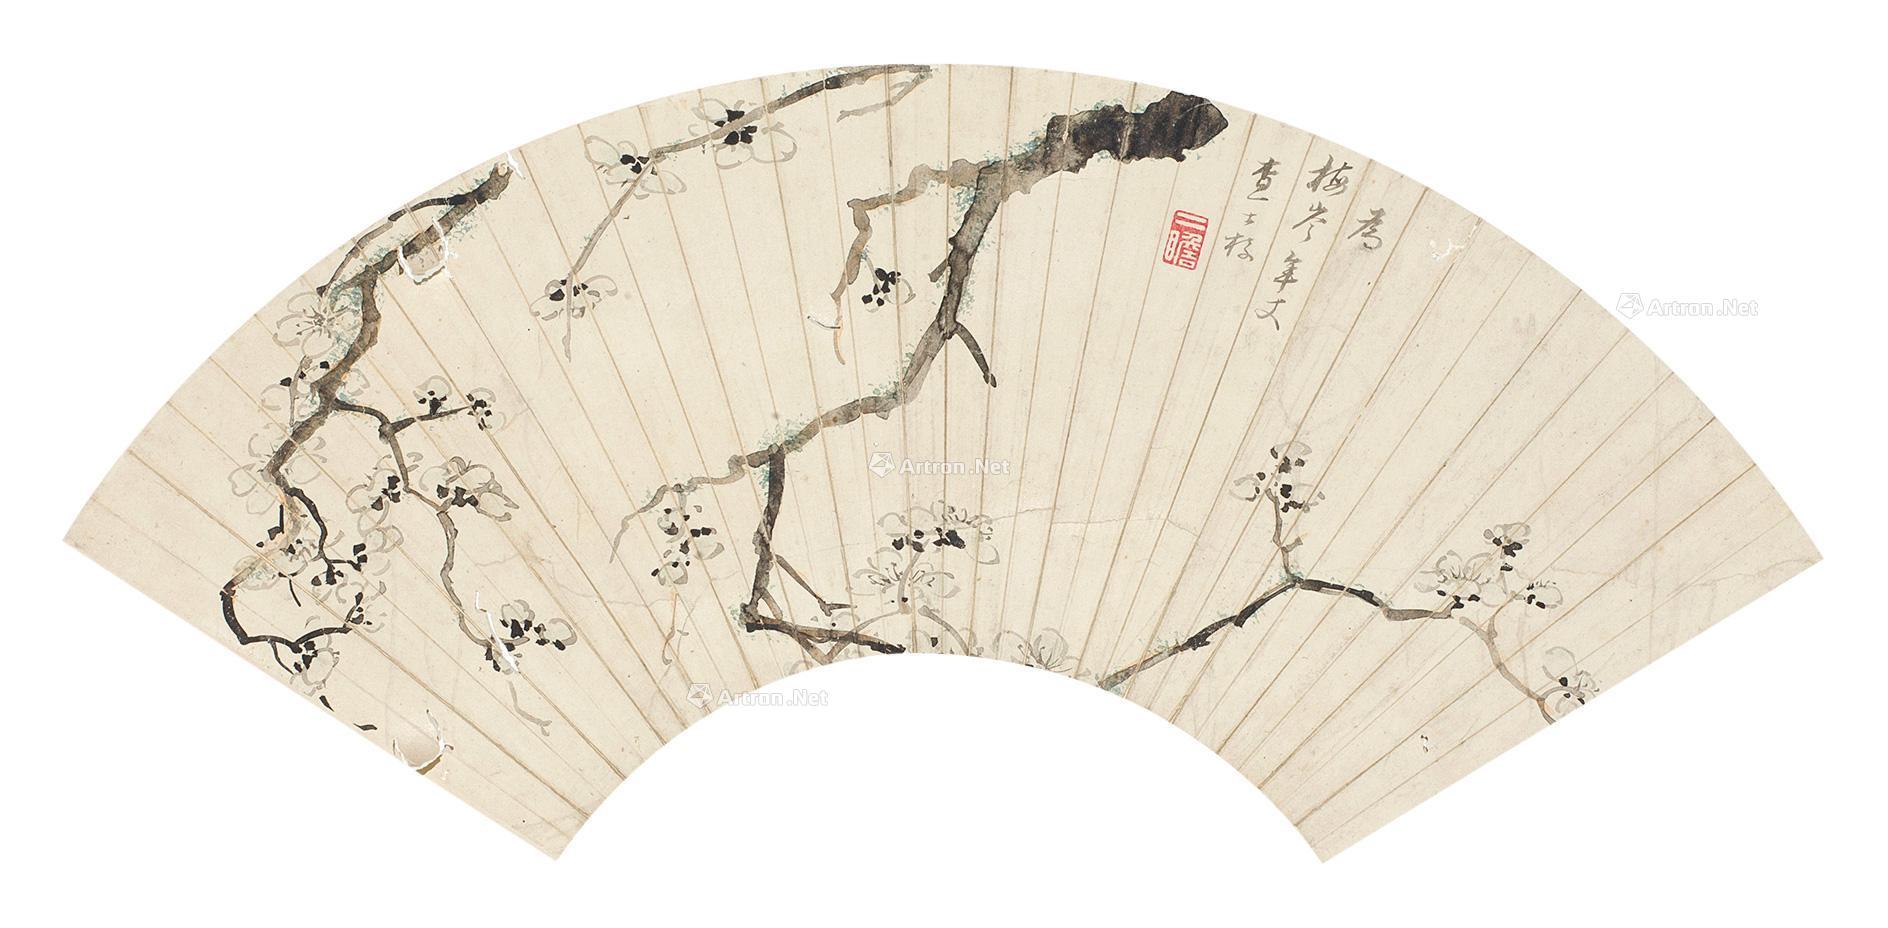 為
梅岑年丈
查士标
二瞻
Artron.Net
Artron.Net
Artron.Net